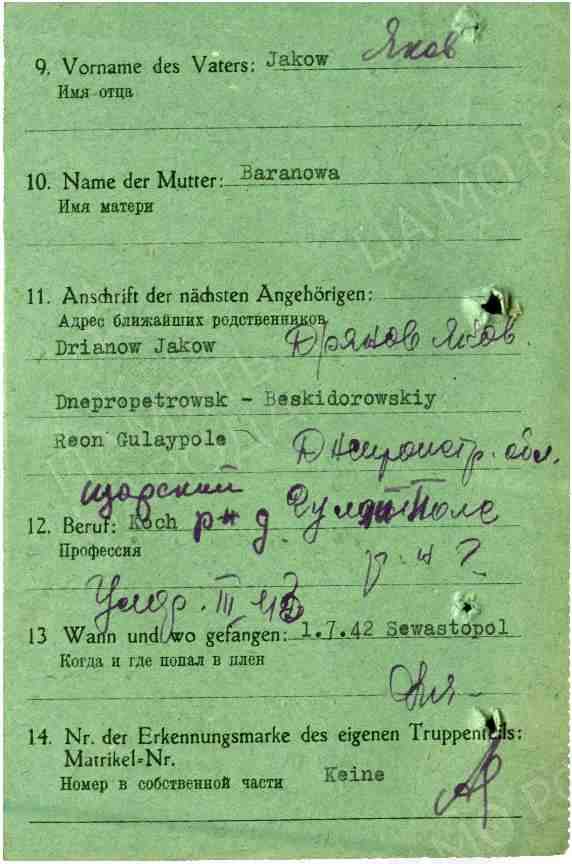 9. Vorname des Vaters: Jakow Яков
Имя отца
10. Name der Mutter: Baranowa
Имя матери
11. Anschrift der nächsten Angehörigen:
Адрес ближайших родственников
Drianow Jakow Дрянов Яков.
Dnepropetrowsk - Beskidorowskiy
Reon Gulaypole Днепропетр. обл.
12. Beruf: Koch р-н д. Гуляй Поле
Профессия р-н ?
13 Wann und wo gefangen: 1.7.42 Sewastopol
Когда и где попал в плен
14. Nr. der Erkennungsmarke des eigenen Truppenteils:
Matrikel-Nr.
Номер в собственной части Keine
ЦАМО РО